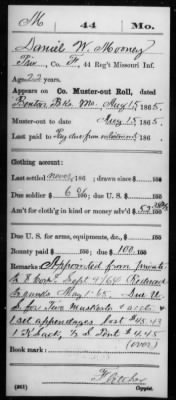 M | 44 | Mo.
Daniel W. Mooney
Priv, Co. F, 44 Reg't Missouri Inf.
Age 22 years.
Appears on Co. Muster-out Roll, dated
Benton Bks Mo. Aug 15, 1865.
Muster-out to date Aug 15, 1865.
Last paid to Pay due from enlistment, 186 .
Clothing account:
Last settled never, 186 ; drawn since $ 100
Due soldier $ 100; due U. S. $ 100
Am't for cloth'g in kind or money adv'd $ 100
Due U. S. for arms, equipments, &c., $ 100
Bounty paid $ 100; due $ 100. 100
Remarks: Appointed from private
to Corp. Sept 4/64 Reduced
to ranks May 1/65. Due U.
S. for two Muskets &
1 set appendages. Lost $48.43
1 K sack, Tent $4.45
(over)
Book mark:
Fletcher
(361) Copyist.